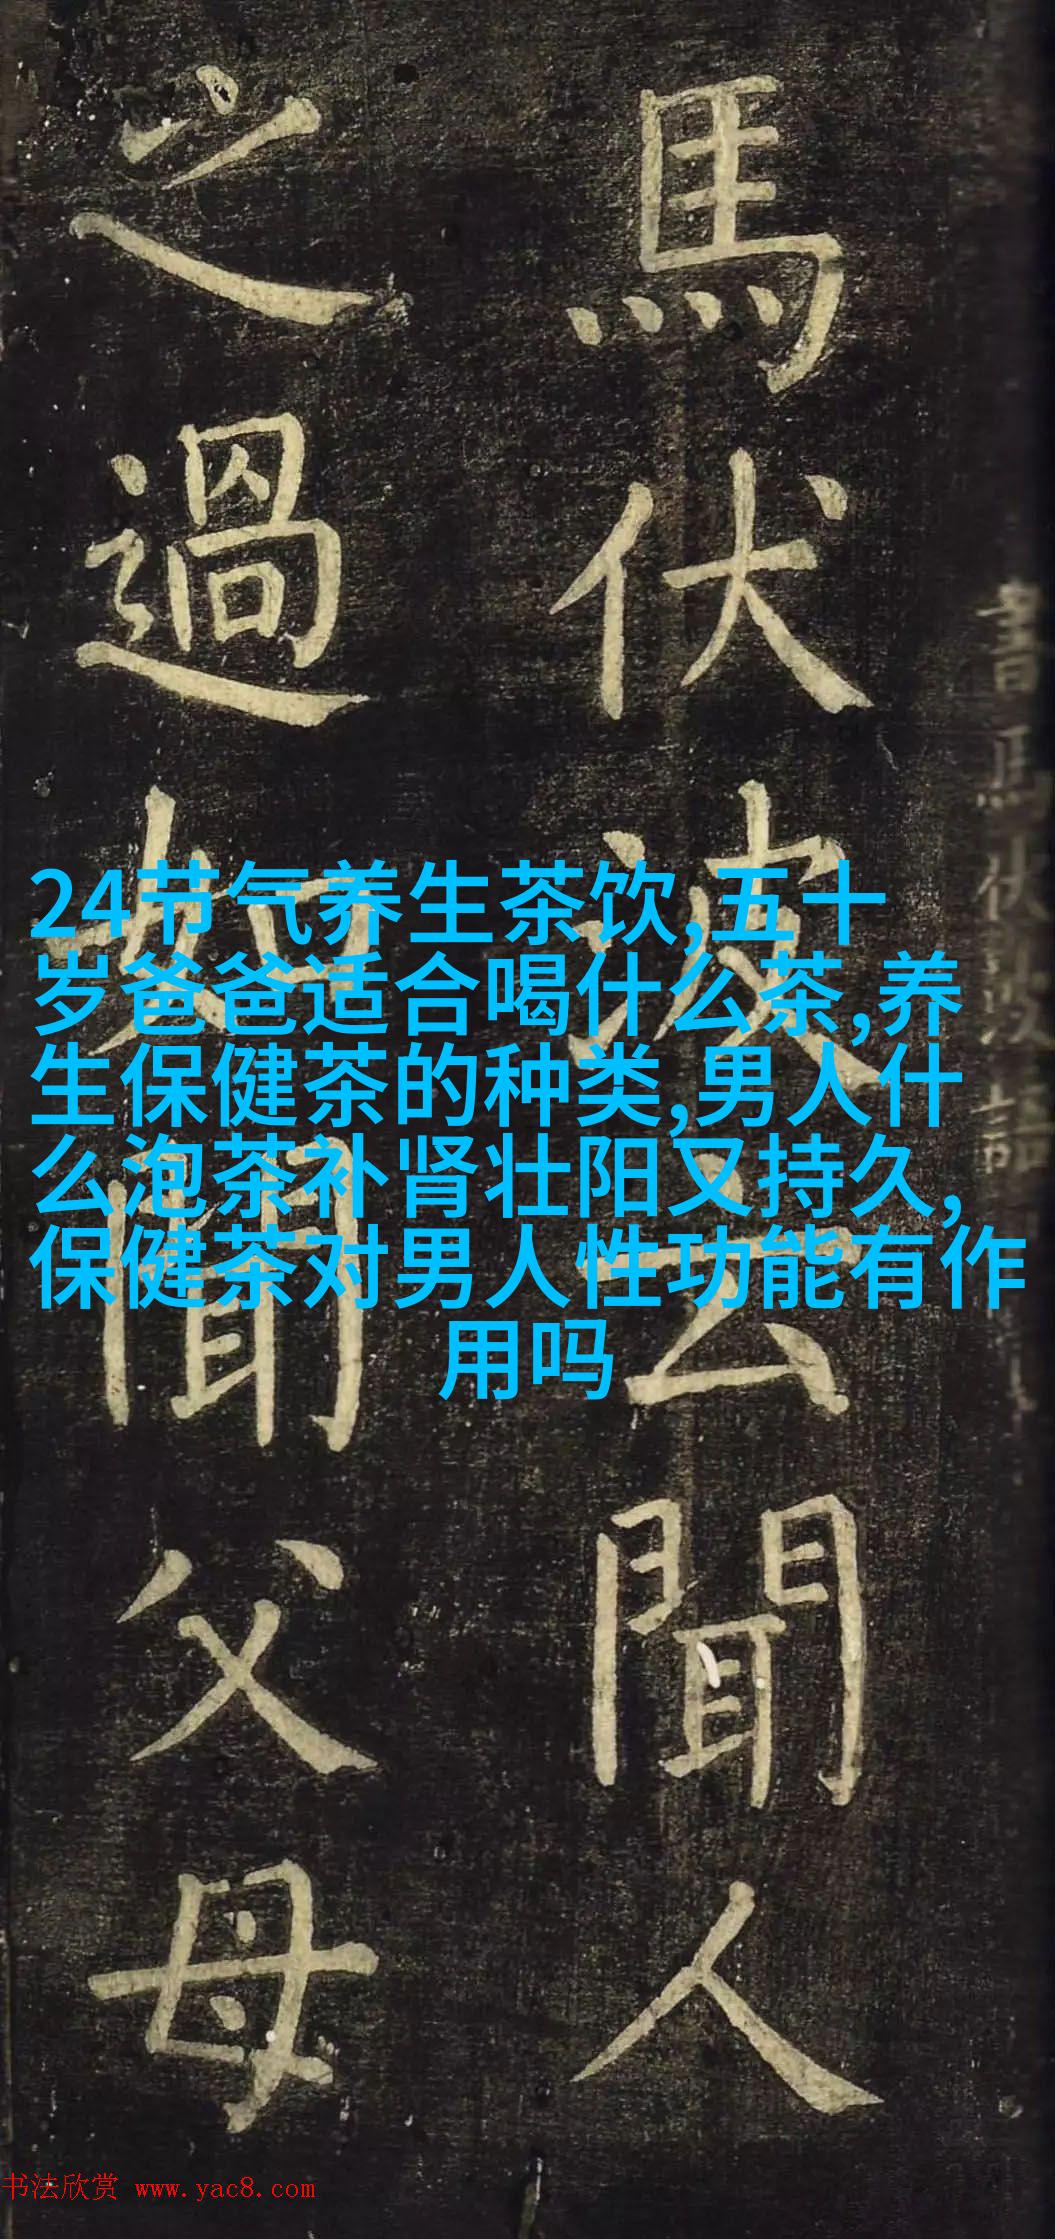 馬伏波云聞人
之過如聞父母
書馬伏波語
24节气养生茶饮,五十
岁爸爸适合喝什么茶,养
生保健茶的种类,男人什
么泡茶补肾壮阳又持久,
保健茶对男人性功能有作
用吗
书法欣赏 www.yac8.com